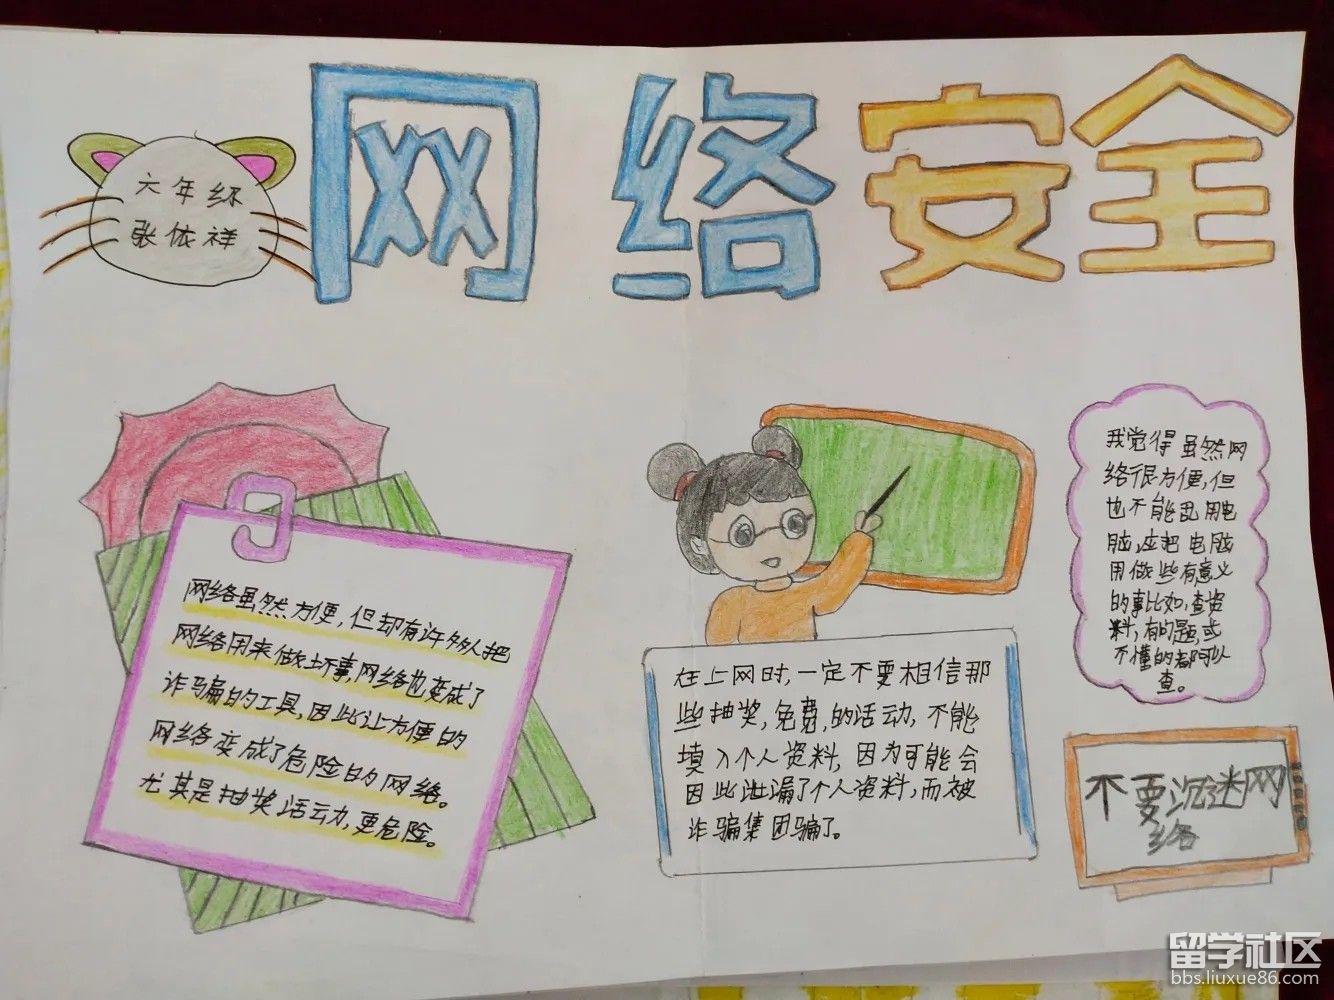 网络安全
六年级
张依祥
网络虽然方便，但却有许多人把
网络用来做坏事，网络也变成了
诈骗的工具，因此让方便的
网络变成了危险的网络。
尤其是抽奖活动，更危险。
在上网时，一定不要相信那
些抽奖，免费，的活动，不能
填入个人资料，因为可能会
因此泄漏了个人资料，而被
诈骗集团骗了。
我觉得虽然网
络很方便，但
也不能乱用电
脑，应把电脑
用做些有意义
的事比如，查资
料，有的题，或
不懂的都可以
查。
不要沉迷网
络
留学社区
bbs.liuxue86.com